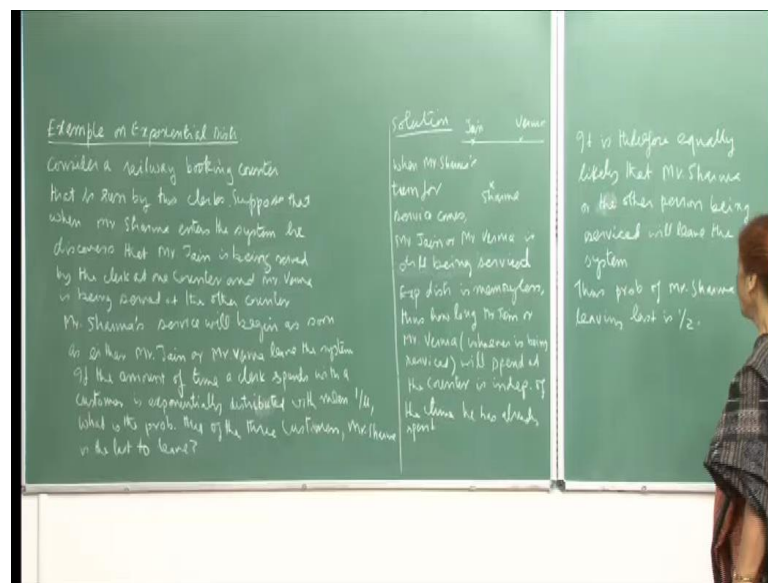 Example on Exponential Distn
Consider a railway booking counter
that is run by two clerks. Suppose that
when Mr Sharma enters the system he
discovers that Mr Jain is being served
by the clerk at one counter and Mr Verma
is being served at the other counter
Mr. Sharma's service will begin as soon
as either Mr. Jain or Mr Verma leave the system
If the amount of time a clerk spends with a
customer is exponentially distributed with mean 1/μ,
What is the prob. that of the three customers, Mr. Sharma
is the last to leave?
Solution Jain Verma
When Mr Sharma's
turn for Sharma
service comes,
Mr Jain or Mr Verma is
still being serviced
Exp distn is memoryless,
thus how long Mr Jain or
Mr. Verma (whoever is being
serviced) will spend at
the counter is indep. of
the time he has already
spent
It is therefore equally
likely that Mr. Sharma
or the other person being
serviced will leave the
system
Thus prob of Mr. Sharma
leaving last is 1/2.